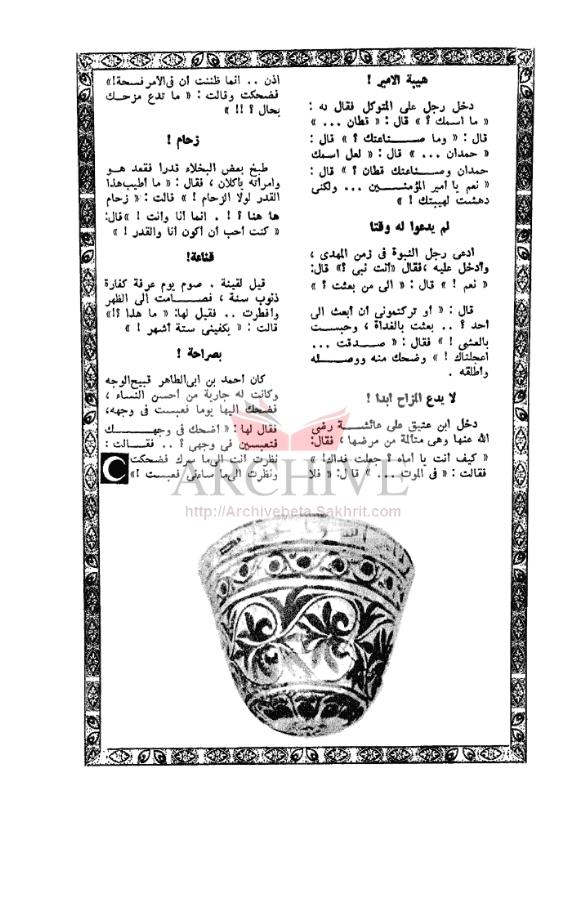 هيبة الامير !
دخل رجل على المتوكل فقال له :
« ما اسمك ؟ » قال : « قطان ... »
قال : « وما صـــناعتك ؟ » قال :
« حمدان ... » قال : « لعل اسمك
حمدان وصــناعتك قطان ؟ » قال :
« نعم يا امير المؤمنـــين ... ولكنى
دهشت لهيبتك ! »
لم يدعوا له وقتا
ادعى رجل النبوة فى زمن المهدى ،
وأدخل عليه ،فقال «أنت نبى ؟» قال:
« نعم ! » قال : « الى من بعثت ؟ »
قال : « أو تركتمونى أن أبعث الى
أحد ؟ .. بعثت بالغداة ، وحبست
بالعشى ! » فقال : « صـــدقت ...
أعجلناك ! » وضحك منه ووصـــله
وأطلقه .
لا يدع المزاح ابدا !
دخل ابن عتيق على عائشـــة رضى
الله عنها وهى متألة من مرضها ، فقال:
« كيف أنت يا أماه ؟ جعلت فداك! »
فقالت : « فى الموت ... » قال: « فلا
اذن .. انما ظننت أن فى الامر فسحة!»
فضحكت وقالت : « ما تدع مزحـــك
بحال ؟ !! »
زحام !
طبخ بعض البخلاء قدرا فقعد هـو
وامرأته يأكلان ، فقال : « ما أطيب هذا
القدر لولا الزحام ! » قالت : « زحام
ها هنا ؟ ! . انما أنا وأنت ! »قال:
« كنت أحب أن أكون أنا والقدر ! »
قناعة!
قيل لقينة . صوم يوم عرفة كفارة
ذنوب سنة ، فصـــامت الى الظهر
وأفطرت .. فقيل لها: « ما هذا ؟!»
قالت : « يكفينى ستة أشهر ! »
بصراحة !
كان أحمد بن ابى الطاهر قبيح الوجه
وكانت له جارية من أحسن النساء ،
فضحك اليها يوما فعبست فى وجهه،
فقال لها : « أضحك فى وجهـــك
فتعبسين فى وجهى ؟ .. فقـــالت :
نظرت أنت الى ما سرك فضحكت
ونظرت الى ما ساءنى فعبست !»
ARCHIVE
http://Archivebeta.Sakhrit.com